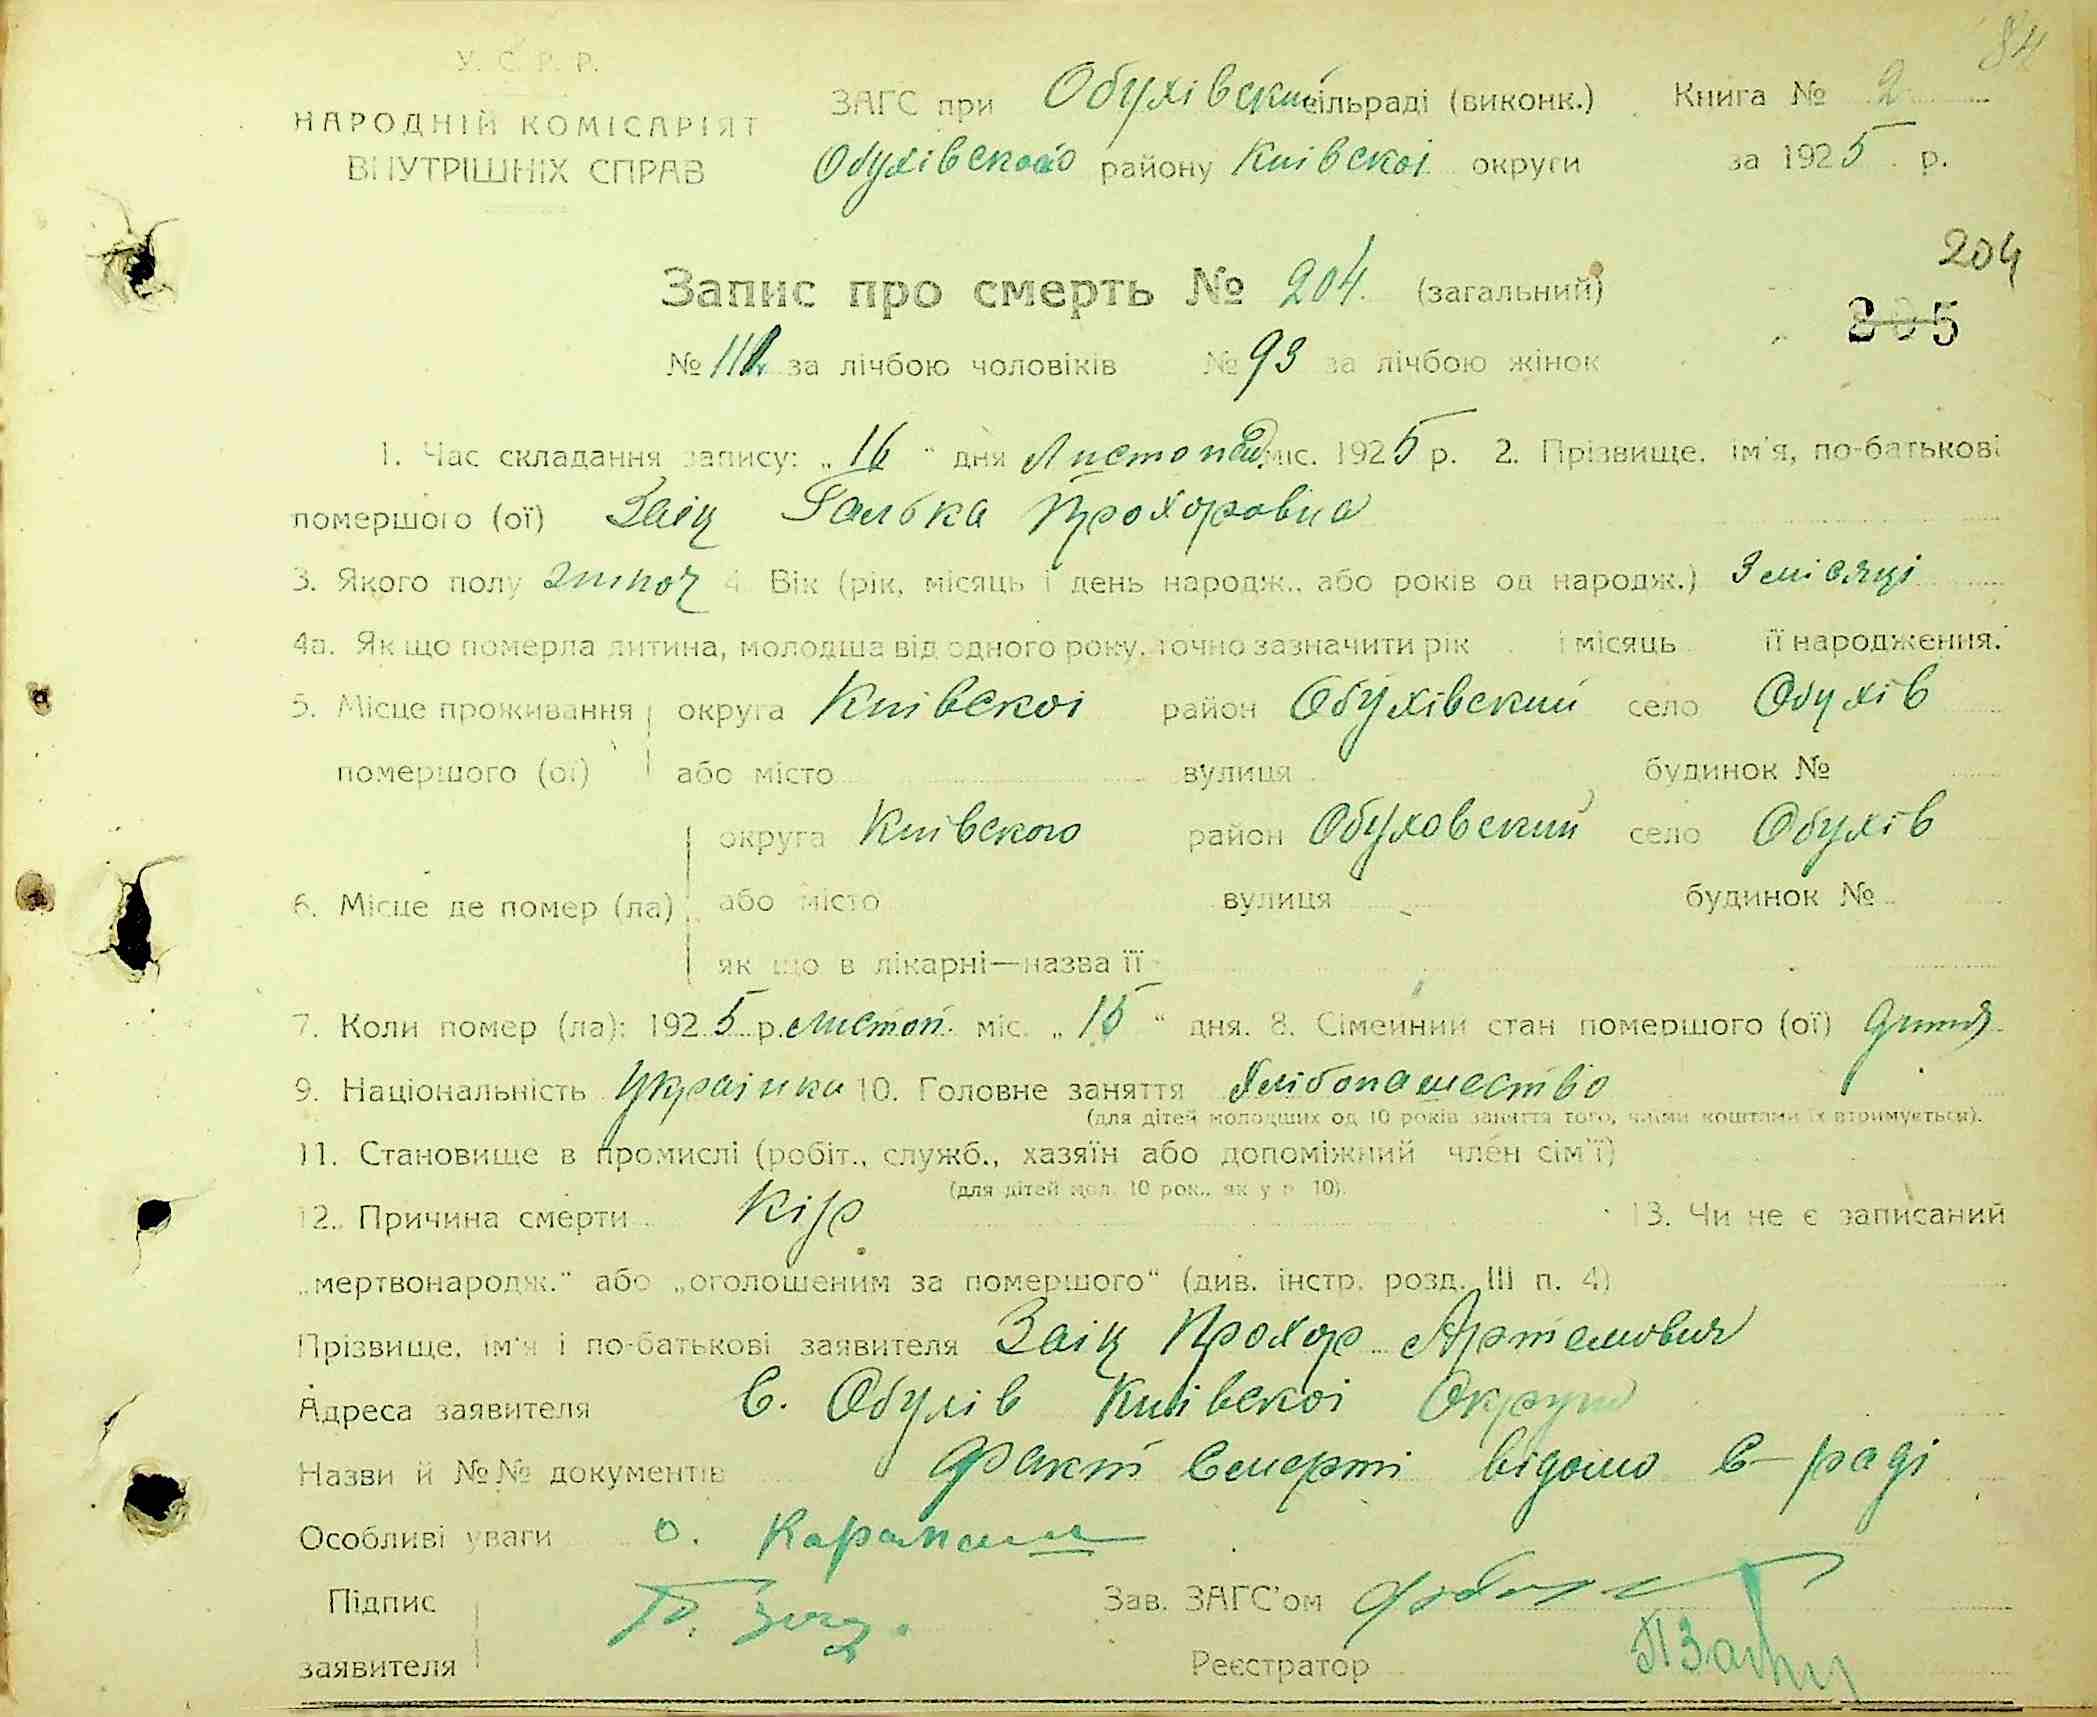 84
У. С. Р. Р.
НАРОДНІЙ КОМІСАРІЯТ
ВНУТРІШНІХ СПРАВ
ЗАГС при Обухівский сільраді (виконк.) Книга № 2
Обухівского району Київскоі округи за 1925 р.
204
Запис про смерть № 204. (загальний)
305
№ 111 за лічбою чоловіків № 93 за лічбою жінок
1. Час складання запису: „16“ дня Листопад міс. 1925 р. 2. Прізвище, ім'я, по-батькові
помершого (ої) Заіц Галька Прохоровна
3. Якого полу жіноч 4. Вік (рік, місяць і день народж., або років од народж.) 3 місяці
4а. Як що померла дитина, молодша від одного року, точно зазначити рік і місяць її народження.
5. Місце проживання округа Київскоі район Обухівский село Обухів
помершого (ої) або місто вулиця будинок №
округа Київского район Обуховский село Обухів
6. Місце де помер (ла) або місто вулиця будинок №
як що в лікарні—назва її
7. Коли помер (ла): 1925 р. Листоп. міс. „15“ дня. 8. Сімейний стан помершого (ої) дитя
9. Національність Украінка 10. Головне заняття Хлібопашество
(для дітей молодших од 10 років заняття того, чиїми коштами їх втримується).
11. Становище в промислі (робіт., служб., хазяїн або допоміжний член сім'ї)
(для дітей мол. 10 рок., як у п. 10).
12. Причина смерти Кір 13. Чи не є записаний
„мертвонародж.“ або „оголошеним за помершого“ (див. інстр. розд. III п. 4)
Прізвище, ім'я і по-батькові заявителя Заіц Прохор Артемович
Адреса заявителя С. Обухів Київскоі Округи
Назви й №№ документів Факт Смерті відомо С-раді
Особливі уваги
Підпис Зав. ЗАГС'ом
заявителя Реєстратор